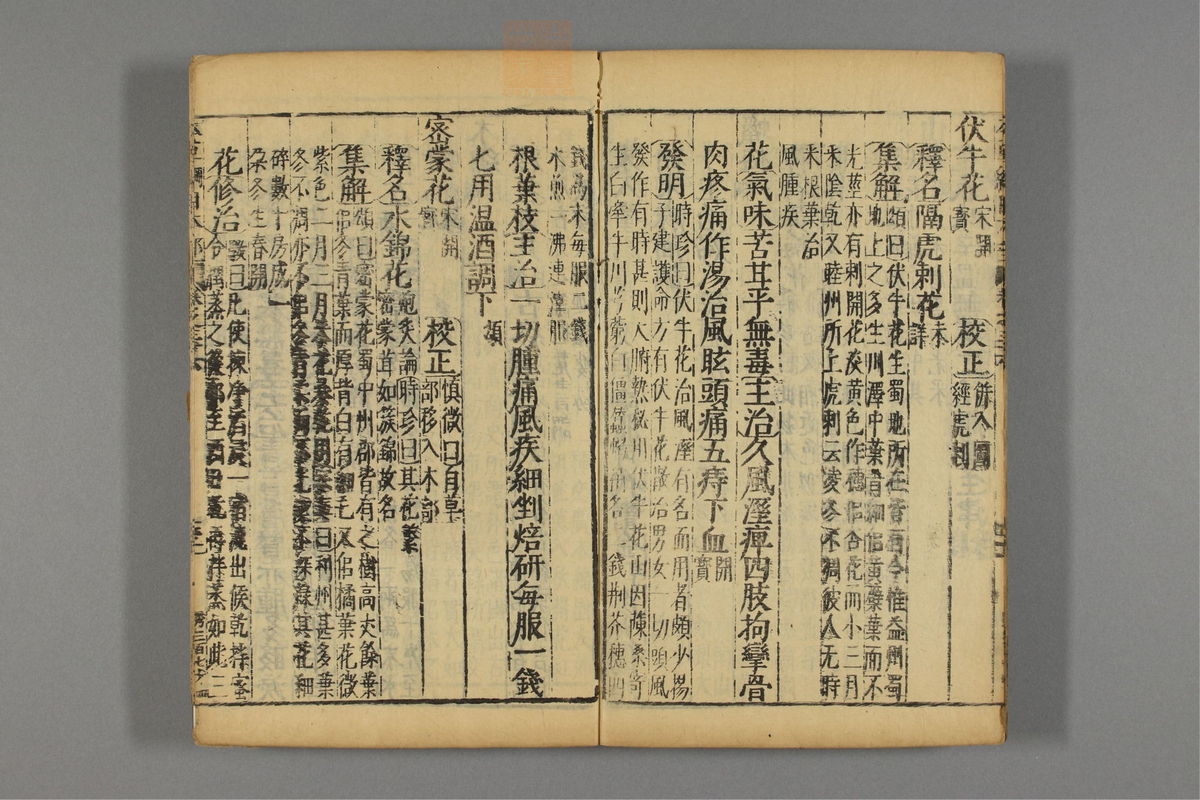 伏牛花宋開寶 校正併入圖經虎刺
釋名隔虎刺花未詳
集解頌曰伏牛花生蜀地所在皆有今惟益州蜀
地上之多生川澤中葉青細似黃蘗葉而不
光莖亦有刺開花淡黃色作穗似杏花而小三月
采陰乾又睦州所上虎刺云凌冬不凋彼人无時
采根葉治
風腫疾
花氣味苦甘平無毒主治久風溼痺四肢拘攣骨
肉疼痛作湯治風眩頭痛五痔下血開寶
發明時珍曰伏牛花治風溼有名而用者頗少楊
子建護命方有伏牛花散治男女一切頭風
發作有時甚則大腑熱秘用伏牛花山茵陳桑寄
生白牽牛川芎藭白僵蠶蜈蚣各 錢荆芥穗四
錢為末每服二錢
水煎一沸連滓服
根葉枝主治一切腫痛風疾細剉焙研每服一錢
七用温酒調下頌
密蒙花宋開寶 校正慎微曰自草部移入木部
釋名水錦花炮炙論時珍曰其花繁密蒙茸如簇錦故名
集解頌曰密蒙花蜀中州郡皆有之樹高丈餘葉
似冬青葉而厚背白有細毛又似橘葉花微
紫色二月三月采花暴乾
冬不凋亦不
碎數十房成一
朵冬生春開
花修治斅曰凡使揀净